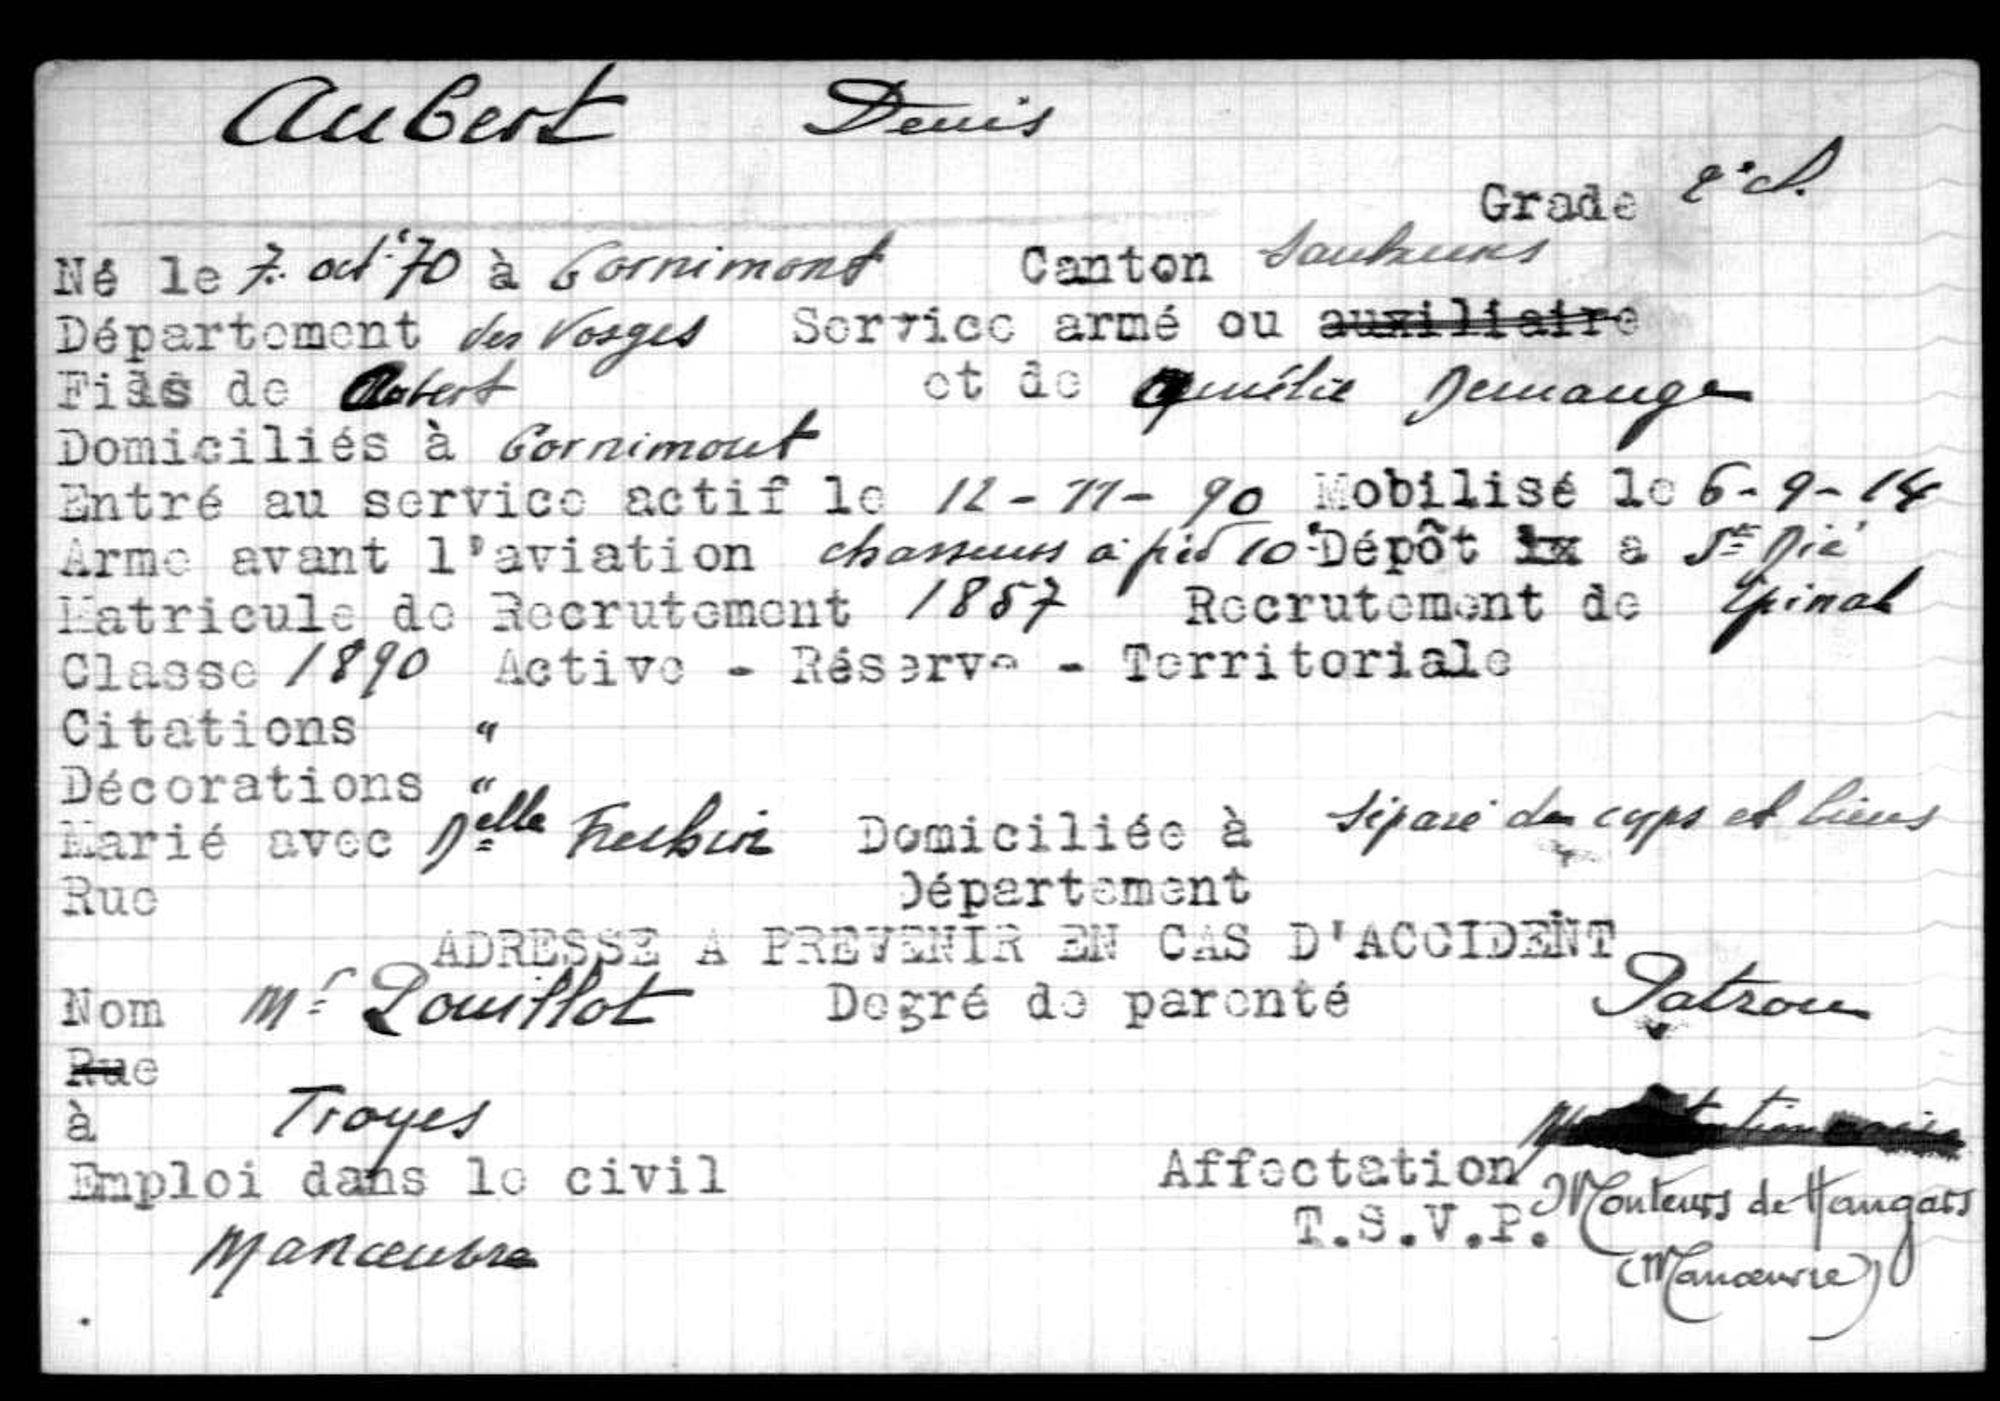 Aubert Denis
Grade 2e cl.
Né le 7. oct. 70 à Cornimont Canton Saulxures
Département des Vosges Service armé ou auxiliaire
Fils de Robert et de Amélie Demange
Domiciliés à Cornimont
Entré au service actif le 12-11-90 Mobilisé le 6-9-14
Arme avant l'aviation chasseurs à pied 10e Dépôt à St Dié
Matricule de Recrutement 1857 Recrutement de Epinal
Classe 1890 Active - Réserve - Territoriale
Citations "
Décorations "
Marié avec Delle Domiciliée à Séparé de corps et biens
Rue Département
ADRESSE A PREVENIR EN CAS D'ACCIDENT
Nom Mr Pouillot Degré de parenté Patron
Rue
à Troyes
Emploi dans le civil Affectation
T.S.V.P. Monteurs de Hangars
Manoeuvre (Manoeuvre)